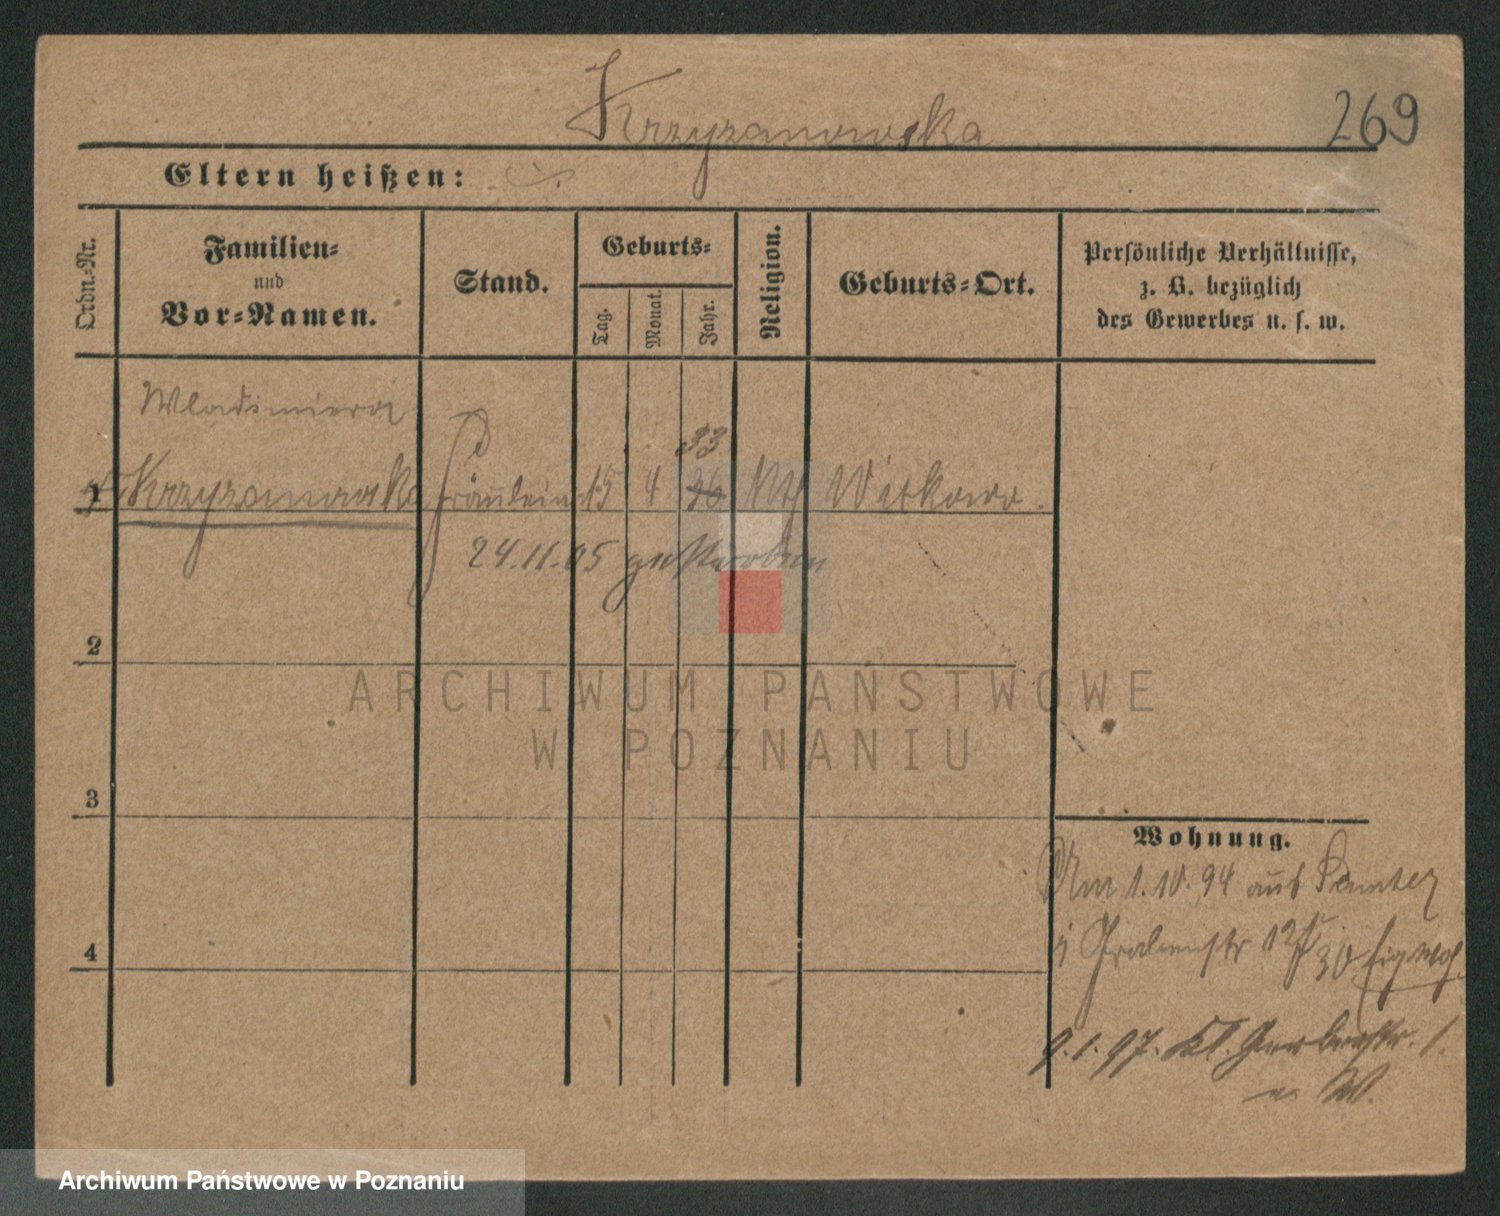 Krzyzanowska
269
Eltern heißen:
Ordn.-Nr.
Familien-
und
Vor-Namen.
Stand.
Geburts-
Tag.
Monat.
Jahr.
Religion.
Geburts-Ort.
Persönliche Verhältnisse,
z. B. bezüglich
des Gewerbes u. s. w.
Wladimiera
33
1 Krzyzanowska Fräulein 15 4 36 kth Witkowo.
24.11.05 gestorben
2
ARCHIWUM PAŃSTWOWE
W POZNANIU
3
Wohnung.
Am 1.10.94 aus Samter
12 30
9.1.97. Kl. Gerberstr. 1.
W.
4
Archiwum Państwowe w Poznaniu